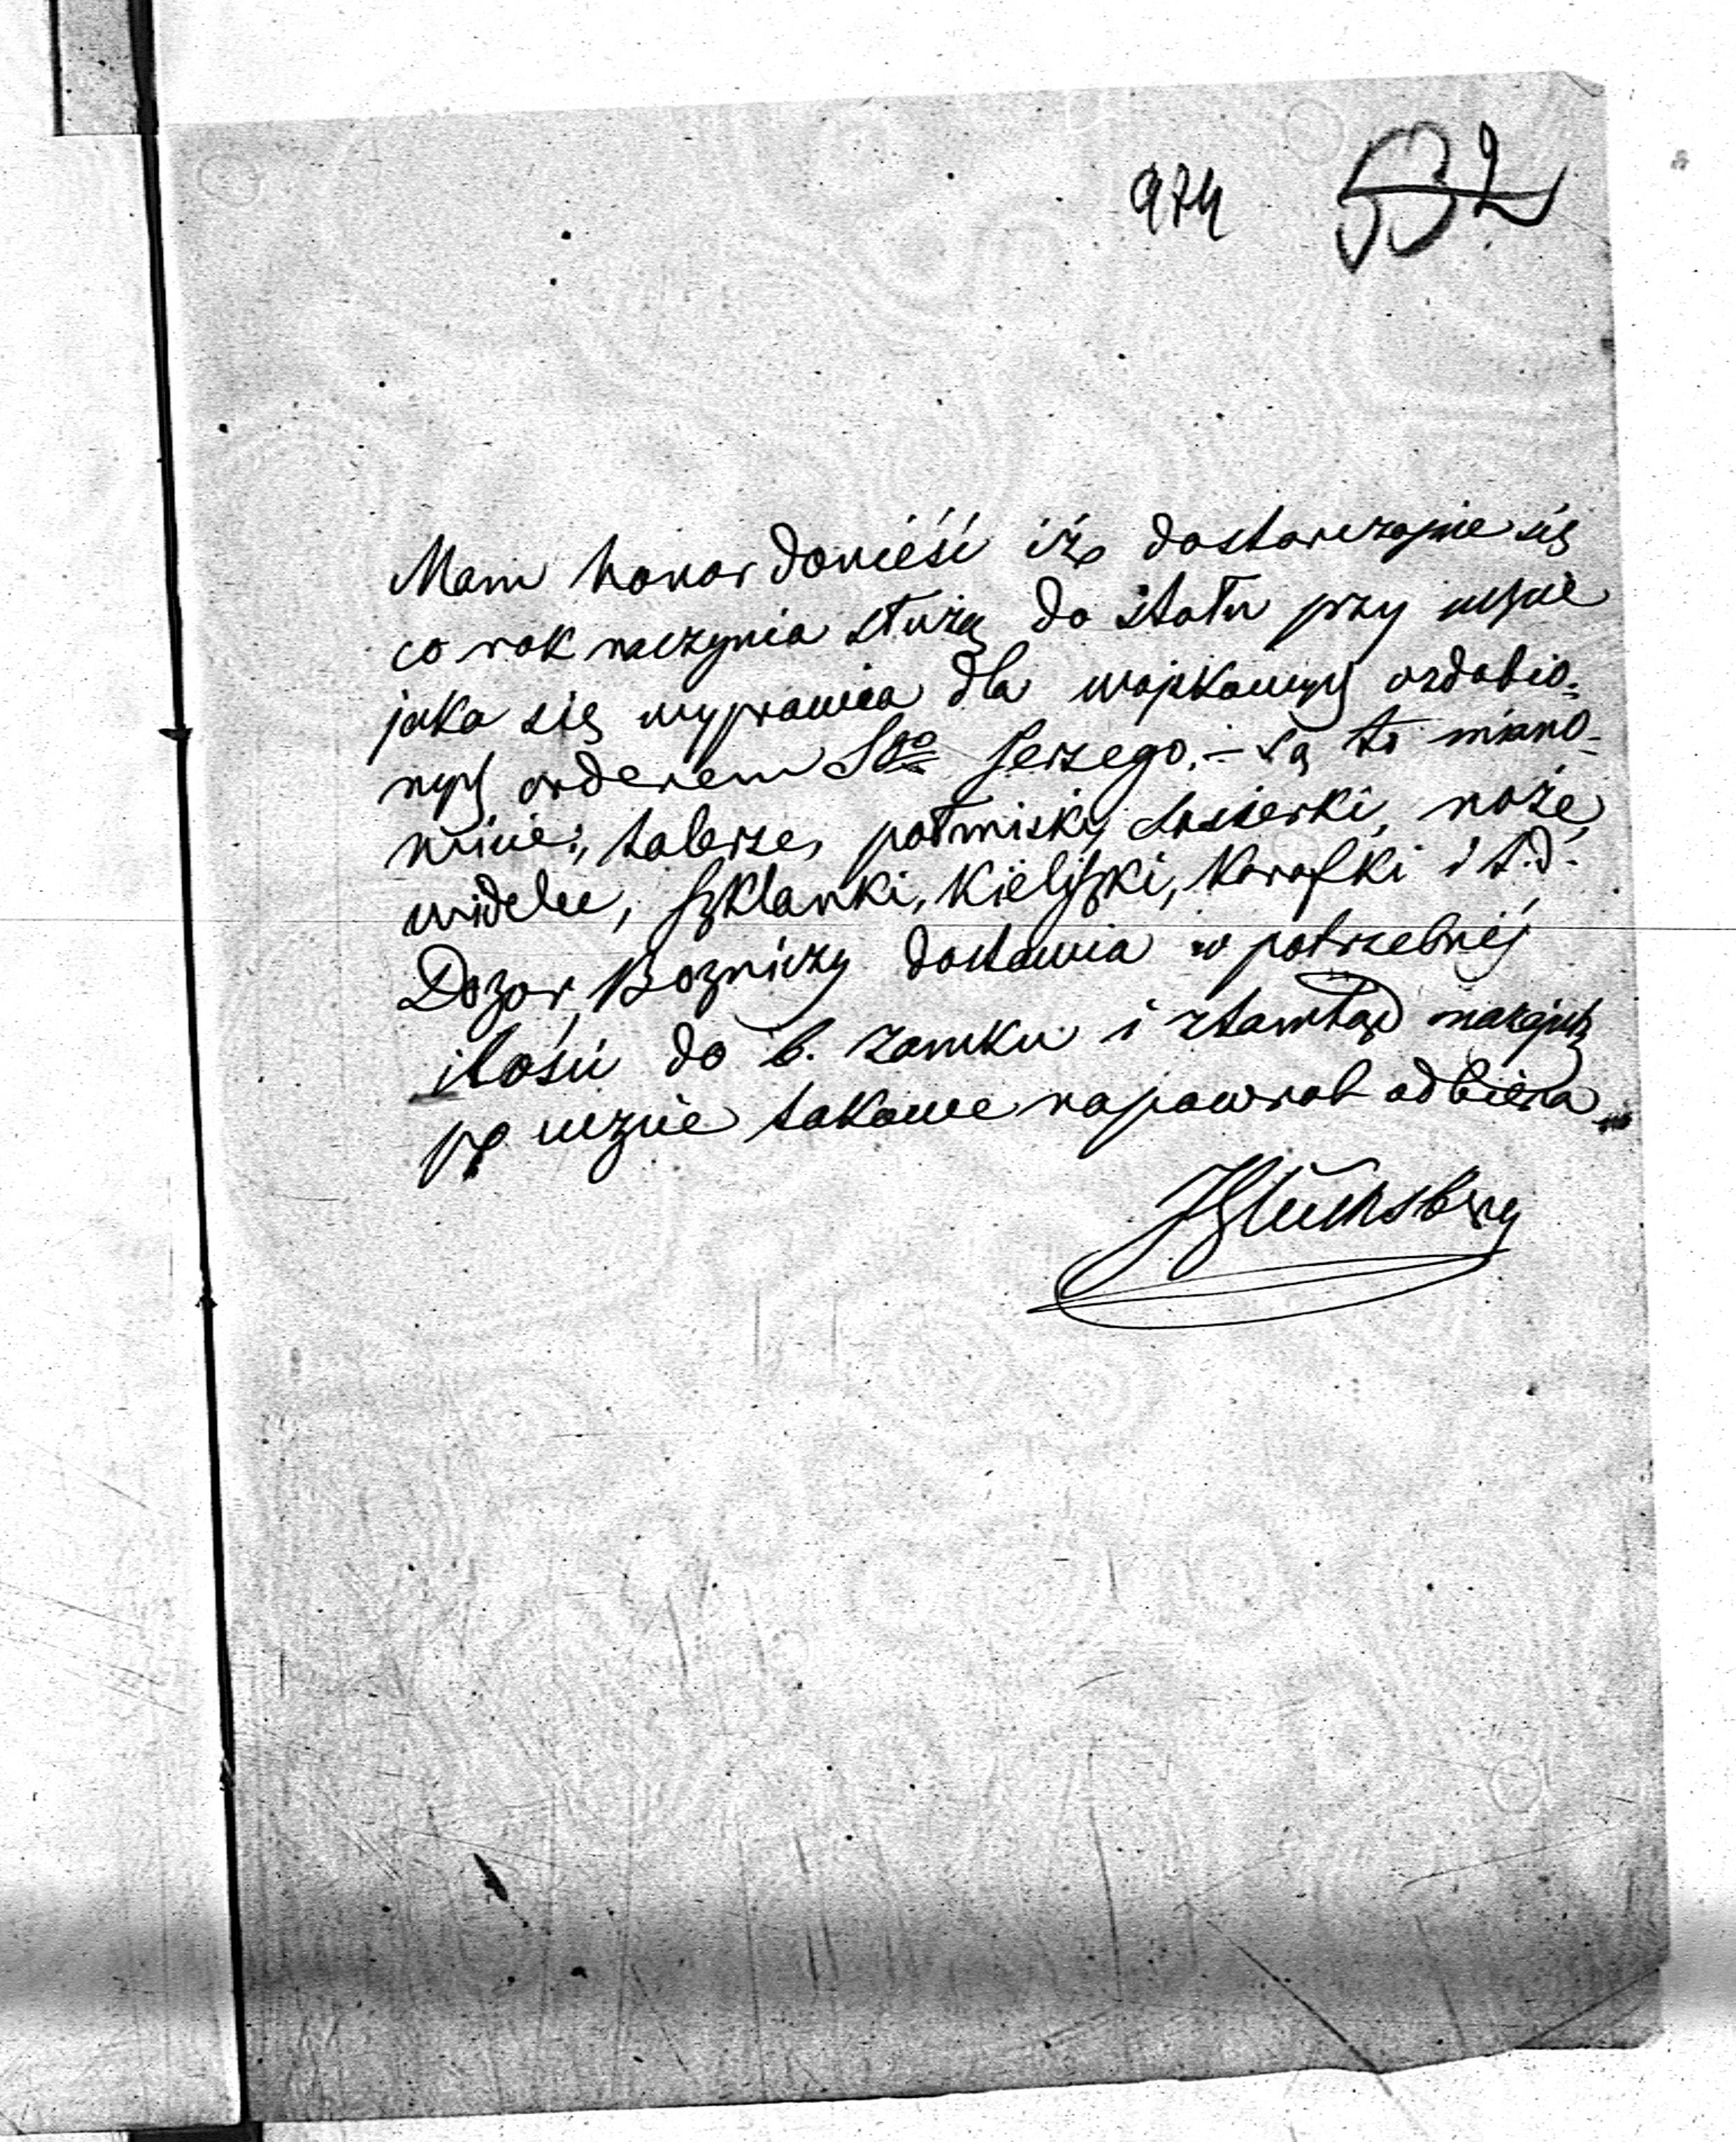 974 532
Mam honor donieść iż dostarczające się
co rok naczynia służą do stołu przy uczcie
jaka się wyprawia dla wojskowych ozdobio=
nych orderem Sgo Jerzego. – Są to miano=
wicie: talerze, półmiski, sosierki, noże,
widelce, szklanki, kieliszki, karafki i t. d.
Dozór Bożniczy dostawia w potrzebnéj
ilości do b. zamku i ztamtąd nazajutrz
po uczcie takowe napowrot odbiera
JGlücksberg